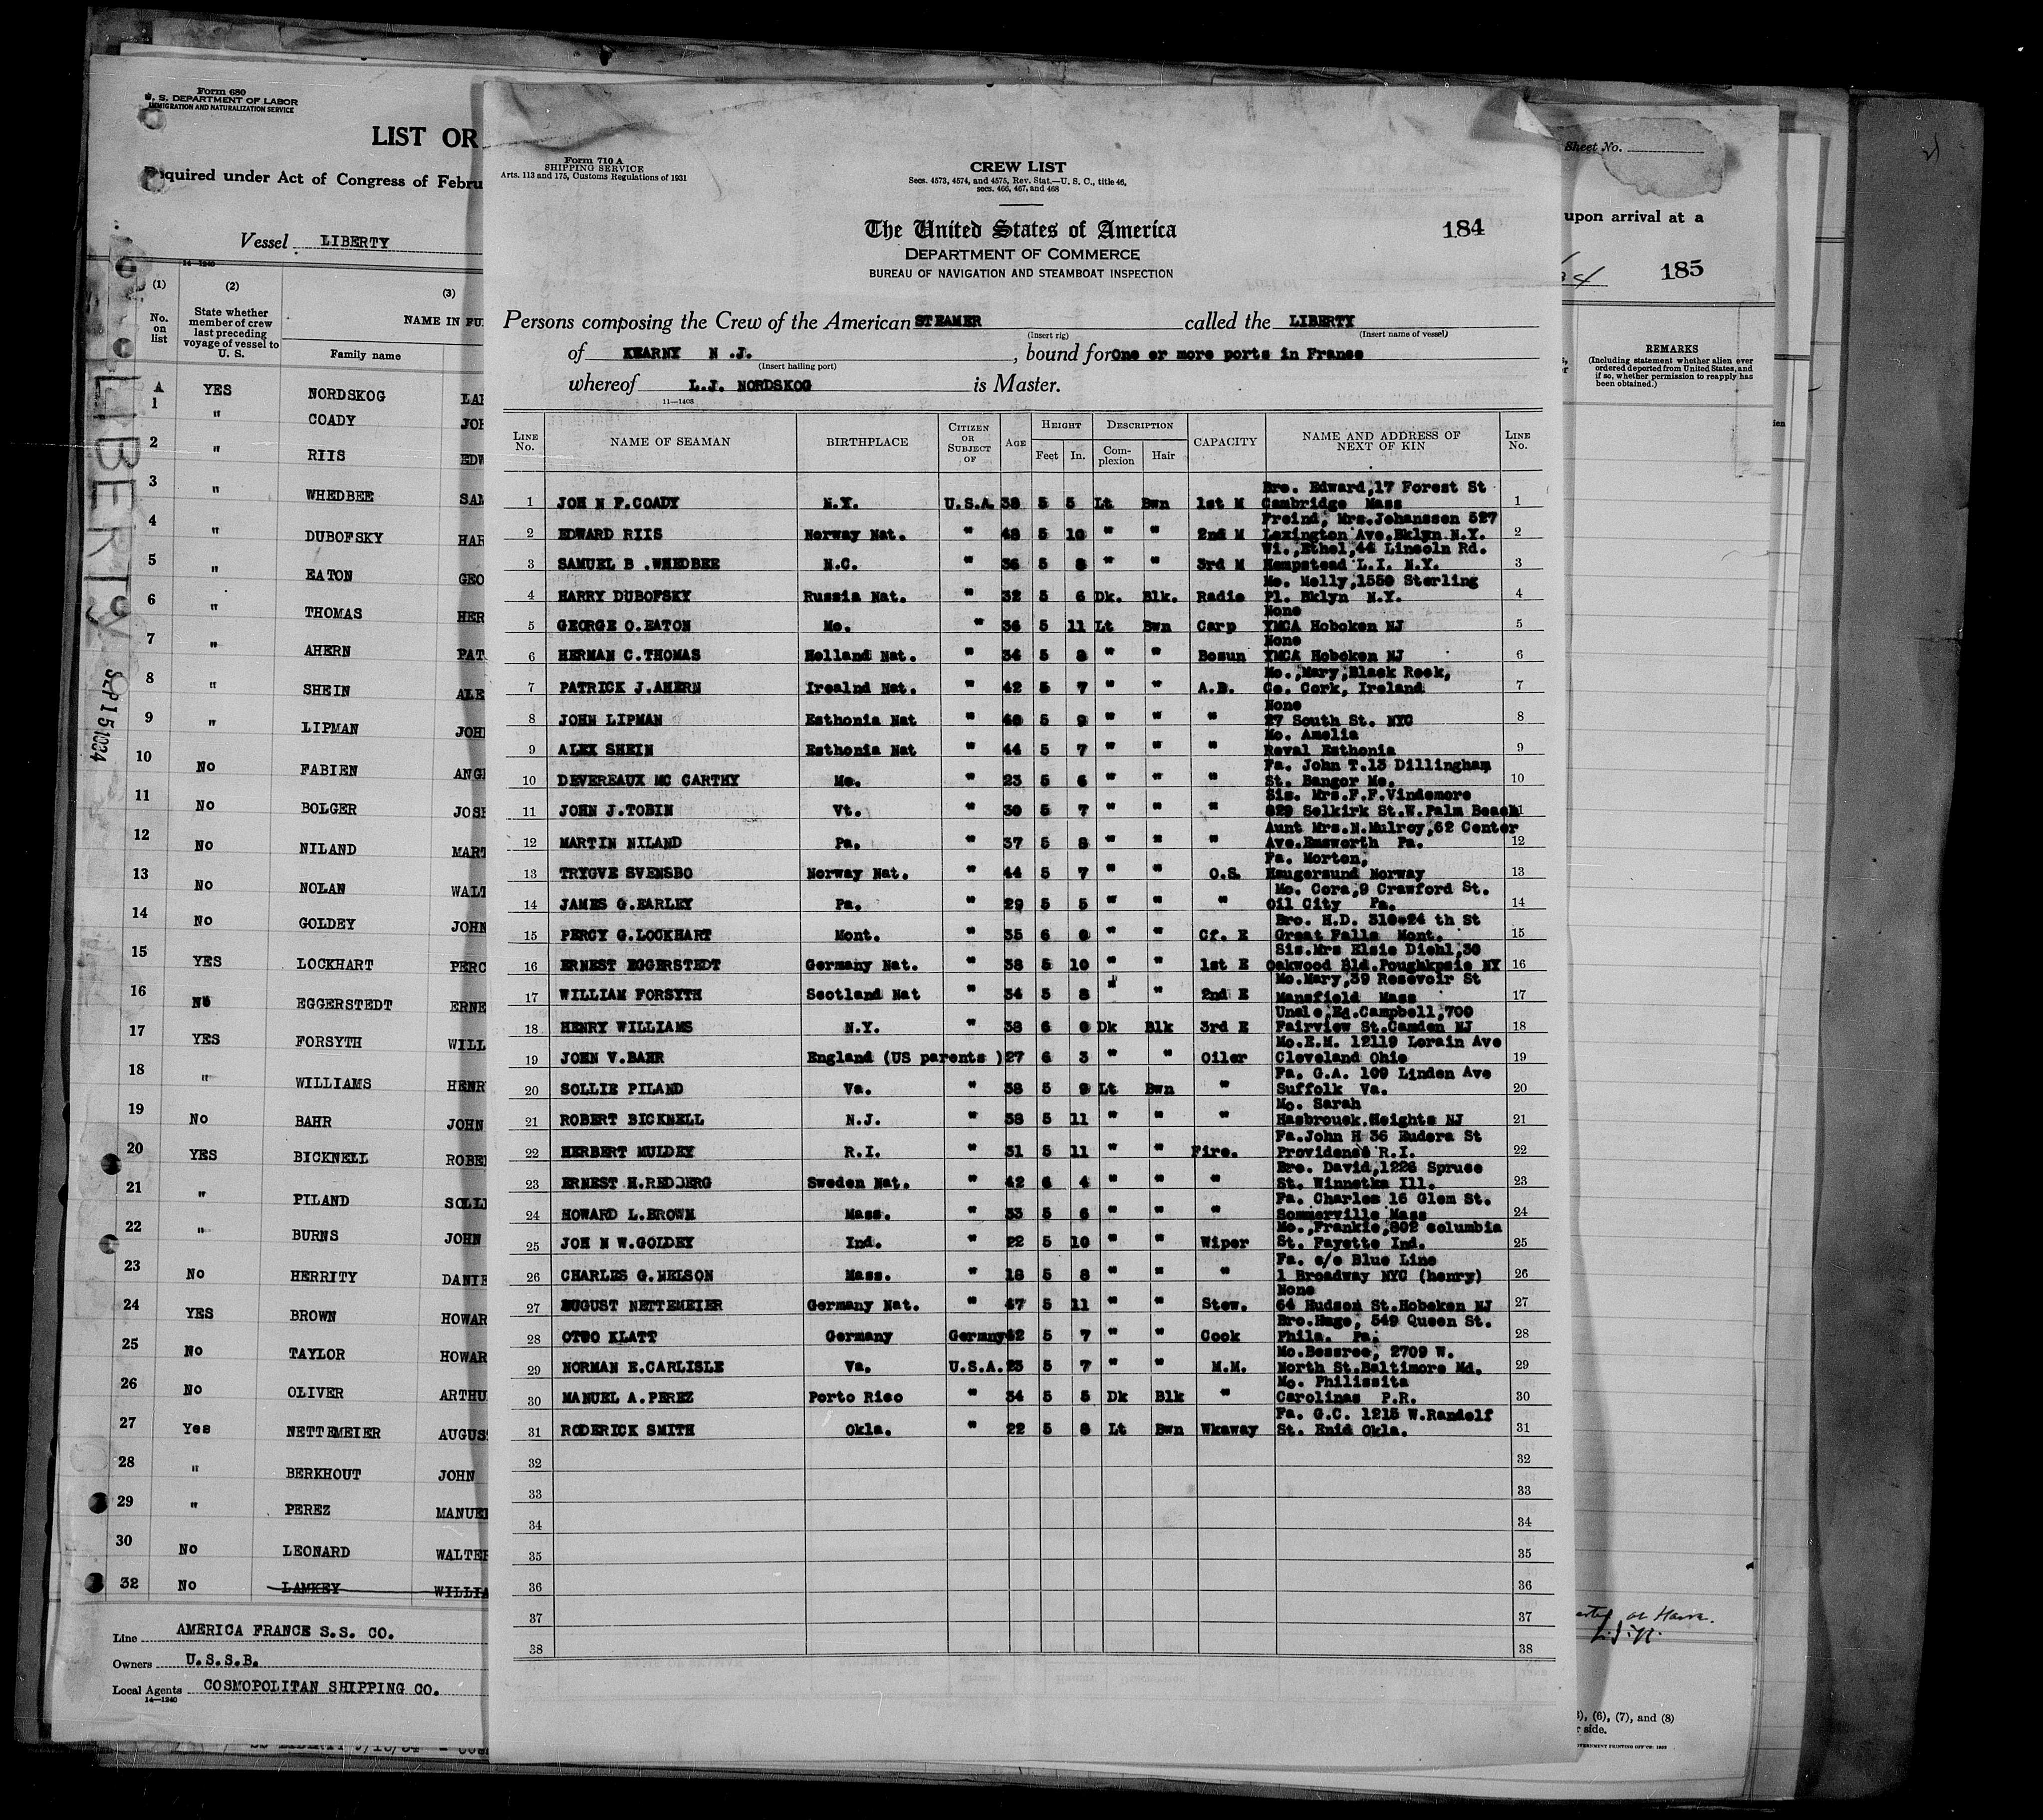 Form 680
U. S. DEPARTMENT OF LABOR
IMMIGRATION AND NATURALIZATION SERVICE
LIST OR
Required under Act of Congress of Febru
Vessel LIBERTY
14—1240
(1) (2) (3)
No. on list
State whether member of crew last preceding voyage of vessel to U. S.
NAME IN FU
Family name
A YES NORDSKOG LAR
1 " COADY JOH
2 " RIIS EDW
3 " WHEDBEE SAM
4 " DUBOFSKY HAR
5 " EATON GEO
6 " THOMAS HER
7 " AHERN PAT
8 " SHEIN ALE
9 " LIPMAN JOH
10 No FABIEN ANG
11 No BOLGER JOS
12 No NILAND MART
13 No NOLAN WALT
14 No GOLDEY JOHN
15 YES LOCKHART PERC
16 No EGGERSTEDT ERNE
17 YES FORSYTH WILL
18 " WILLIAMS HENR
19 No BAHR JOHN
20 YES BICKNELL ROBE
21 " PILAND SOLL
22 " BURNS JOHN
23 No HERRITY DANIE
24 YES BROWN HOWAR
25 No TAYLOR HOWAR
26 No OLIVER ARTHU
27 Yes NETTEMEIER AUGUS
28 " BERKHOUT JOHN
29 " PEREZ MANUE
30 No LEONARD WALTER
32 No LAMKEY WILLIA
Line AMERICA FRANCE S.S. CO.
Owners U.S.S.B.
Local Agents COSMOPOLITAN SHIPPING CO.
14—1240
LIBERTY
SEP 15 1934
Form 710 A
SHIPPING SERVICE
Arts. 113 and 175, Customs Regulations of 1931
CREW LIST
Secs. 4573, 4574, and 4575, Rev. Stat.—U. S. C., title 46,
secs. 466, 467, and 468
The United States of America
184
DEPARTMENT OF COMMERCE
BUREAU OF NAVIGATION AND STEAMBOAT INSPECTION
Persons composing the Crew of the American STEAMER called the LIBERTY
(Insert rig) (Insert name of vessel)
of KEARNY N .J. , bound for One or more ports in France
(Insert hailing port)
whereof L.J. NORDSKOG is Master.
11—1408
LINE No. NAME OF SEAMAN BIRTHPLACE CITIZEN OR SUBJECT OF AGE HEIGHT Feet In. DESCRIPTION Complexion Hair CAPACITY NAME AND ADDRESS OF NEXT OF KIN LINE No.
Bro. Edward,17 Forest St
1 JOH N F.COADY N.Y. U.S.A. 38 5 5 Lt Bwn 1st M Cambridge Mass 1
Freind, Mrs.Johanssen 527
2 EDWARD RIIS Norway Nat. " 48 5 10 " " 2nd M Lexington Ave.Bklyn N.Y. 2
Wi.,Ethel,44 Lincoln Rd.
3 SAMUEL B .WHEDBEE N.C. " 36 5 8 " " 3rd M Hempstead L.I. N.Y. 3
Mo. Molly,1550 Sterling
4 HARRY DUBOFSKY Russia Nat. " 32 5 6 Dk. Blk. Radio Pl. Bklyn N.Y. 4
None
5 GEORGE O.EATON Mo. " 36 5 11 Lt Bwn Carp YMCA Hoboken NJ 5
None
6 HERMAN C.THOMAS Holland Nat. " 34 5 8 " " Bosun YMCA Hoboken NJ 6
Mo.,Mary,Black Rock,
7 PATRICK J.AHERN Irealnd Nat. " 42 5 7 " " A.B. Co. Cork, Ireland 7
None
8 JOHN LIPMAN Esthonia Nat " 40 5 9 " " " 27 South St. NYC 8
Mo. Amelia
9 ALEX SHEIN Esthonia Nat " 44 5 7 " " " Reval Esthonia 9
Fa. John T.13 Dillingham
10 DEVEREAUX MC CARTHY Me. " 23 5 6 " " " St. Bangor Me. 10
Sis. Mrs.F.F.Vindemore
11 JOHN J.TOBIN Vt. " 30 5 7 " " " 829 Selkirk St.W.Palm Beach 11
Aunt Mrs.N.Mulroy,62 Center
12 MARTIN NILAND Pa. " 37 5 8 " " " Ave.Emsworth Pa. 12
Fa. Morten,
13 TRYGVE SVENSBO Norway Nat. " 44 5 7 " " O.S. Haugersund Norway 13
Mo. Cora,9 Crawford St.
14 JAMES G.EARLEY Pa. " 29 5 5 " " " Oil City Pa. 14
Bro. H.D. 310-24 th St
15 PERCY G.LOCKHART Mont. " 35 6 0 " " Cf. E Great Falls Mont. 15
Sis.Mrs Elsie Diehl,30
16 ERNEST EGGERSTEDT Germany Nat. " 38 5 10 " " 1st E Oakwood Bld.Poughkpsie NY 16
Mo.Mary,39 Resevoir St
17 WILLIAM FORSYTH Scotland Nat " 34 5 8 " " 2nd E Mansfield Mass 17
Uncle,Ed.Campbell,700
18 HENRY WILLIAMS N.Y. " 38 6 0 Dk Blk 3rd E Fairview St.Camden NJ 18
Mo.E.M. 12119 Lorain Ave
19 JOHN V.BAHR England (US parents ) 27 6 3 " " Oiler Cleveland Ohio 19
Fa. G.A. 109 Linden Ave
20 SOLLIE PILAND Va. " 38 5 9 Lt Bwn " Suffolk Va. 20
Mo. Sarah
21 ROBERT BICKNELL N.J. " 38 5 11 " " " Hasbrouck.Heights NJ 21
Fa.John H 36 Eudora St
22 HERBERT MULDEY R.I. " 31 5 11 " " Fire. Providence R.I. 22
Bro. David,1226 Spruce
23 ERNEST H.REDBERG Sweden Nat. " 42 6 4 " " " St. Winnetka Ill. 23
Fa. Charles 16 Glem St.
24 HOWARD L.BROWN Mass. " 33 5 6 " " " Sommerville Mass 24
Mo.,Frankie,802 columbia
25 JOH N W.GOLDEY Ind. " 22 5 10 " " Wiper St. Fayette Ind. 25
Fa. c/o Blue Line
26 CHARLES G.NELSON Mass. " 18 5 8 " " " 1 Broadway NYC (henry) 26
None
27 AUGUST NETTEMEIER Germany Nat. " 47 5 11 " " Stew. 64 Hudson St.Hoboken NJ 27
Bro.Hugo, 549 Queen St.
28 OTTO KLATT Germany Germny 42 5 7 " " Cook Phila. Pa. 28
Mo.Bessree, 2709 W.
29 NORMAN E.CARLISLE Va. U.S.A. 23 5 7 " " M.M. North St.Baltimore Md. 29
Mo. Philissita
30 MANUEL A.PEREZ Porto Rico " 34 5 5 Dk Blk " Carolinas P.R. 30
Fa. G.C. 1215 W.Randolf
31 RODERICK SMITH Okla. " 22 5 8 Lt Bwn Wkaway St. Enid Okla. 31
32 32
33 33
34 34
35 35
36 36
37 37
38 38
Sheet No.
upon arrival at a
185
REMARKS
(Including statement whether alien ever ordered deported from United States, and if so, whether permission to reapply has been obtained.)
L.J.N.
), (6), (7), and (8)
r side.